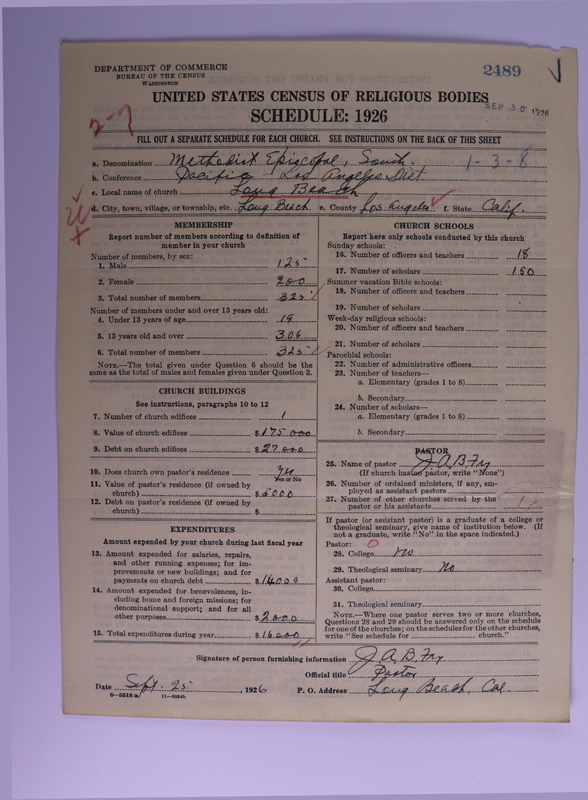 DEPARTMENT OF COMMERCE
BUREAU OF THE CENSUS
WASHINGTON
2489
UNITED STATES CENSUS OF RELIGIOUS BODIES
SEP 30 1926
SCHEDULE: 1926
2-7
FILL OUT A SEPARATE SCHEDULE FOR EACH CHURCH. SEE INSTRUCTIONS ON THE BACK OF THIS SHEET
a. Denomination Methodist Episcopal, South.
1-3-8
b. Conference Pacific Los Angeles Dist
c. Local name of church Long Beach
d. City, town, village, or township, etc. Long Beach e. County Los Angeles f. State Calif.
MEMBERSHIP
Report number of members according to definition of
member in your church
Number of members, by sex:
1. Male 125
2. Female 200
3. Total number of members 325
Number of members under and over 13 years old:
4. Under 13 years of age 19
5. 13 years old and over 306
6. Total number of members 325
NOTE.—The total given under Question 6 should be the
same as the total of males and females given under Question 3.
CHURCH BUILDINGS
See instructions, paragraphs 10 to 12
7. Number of church edifices 1
8. Value of church edifices $175000
9. Debt on church edifices $27000
10. Does church own pastor's residence? Yes
Yes or No
11. Value of pastor's residence (if owned by
church) $5000
12. Debt on pastor's residence (if owned by
church) $
EXPENDITURES
Amount expended by your church during last fiscal year
13. Amount expended for salaries, repairs,
and other running expenses; for im-
provements or new buildings; and for
payments on church debt $14000
14. Amount expended for benevolences, in-
cluding home and foreign missions; for
denominational support; and for all
other purposes $2000
15. Total expenditures during year $16000
CHURCH SCHOOLS
Report here only schools conducted by this church
Sunday schools:
16. Number of officers and teachers 18
17. Number of scholars 150
Summer vacation Bible schools:
18. Number of officers and teachers
19. Number of scholars
Week-day religious schools:
20. Number of officers and teachers
21. Number of scholars
Parochial schools:
22. Number of administrative officers
23. Number of teachers—
a. Elementary (grades 1 to 8)
b. Secondary
24. Number of scholars—
a. Elementary (grades 1 to 8)
b. Secondary
PASTOR
25. Name of pastor J. A. B. Fry
(If church has no pastor, write "None")
26. Number of ordained ministers, if any, em-
ployed as assistant pastors
27. Number of other churches served by the
pastor or his assistants
If pastor (or assistant pastor) is a graduate of a college or
theological seminary, give name of institution below. (If
not a graduate, write "No" in the space indicated.)
Pastor: 0
28. College No
29. Theological seminary No
Assistant pastor:
30. College
31. Theological seminary
NOTE.—Where one pastor serves two or more churches,
Questions 28 and 29 should be answered only on the schedule
for one of the churches; on the schedules for the other churches,
write "See schedule for church."
Signature of person furnishing information J. A. B. Fry
Official title Pastor
Date Sept. 25, 1926 P. O. Address Long Beach, Cal.